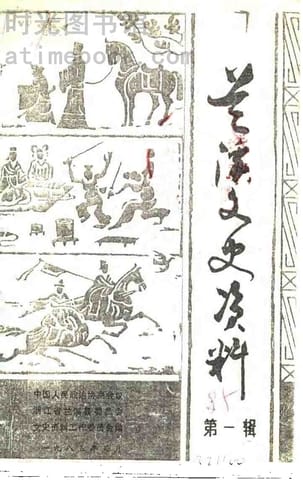 时光图书馆
atimebook.com
兰溪文史资料
第一辑
中国人民政治协商会议
浙江省兰溪县委员会
文史资料工作委员会编